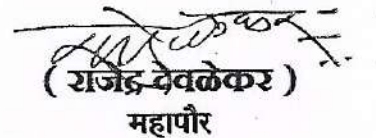 ( राजेंद्र देवळेकर )
महापौर